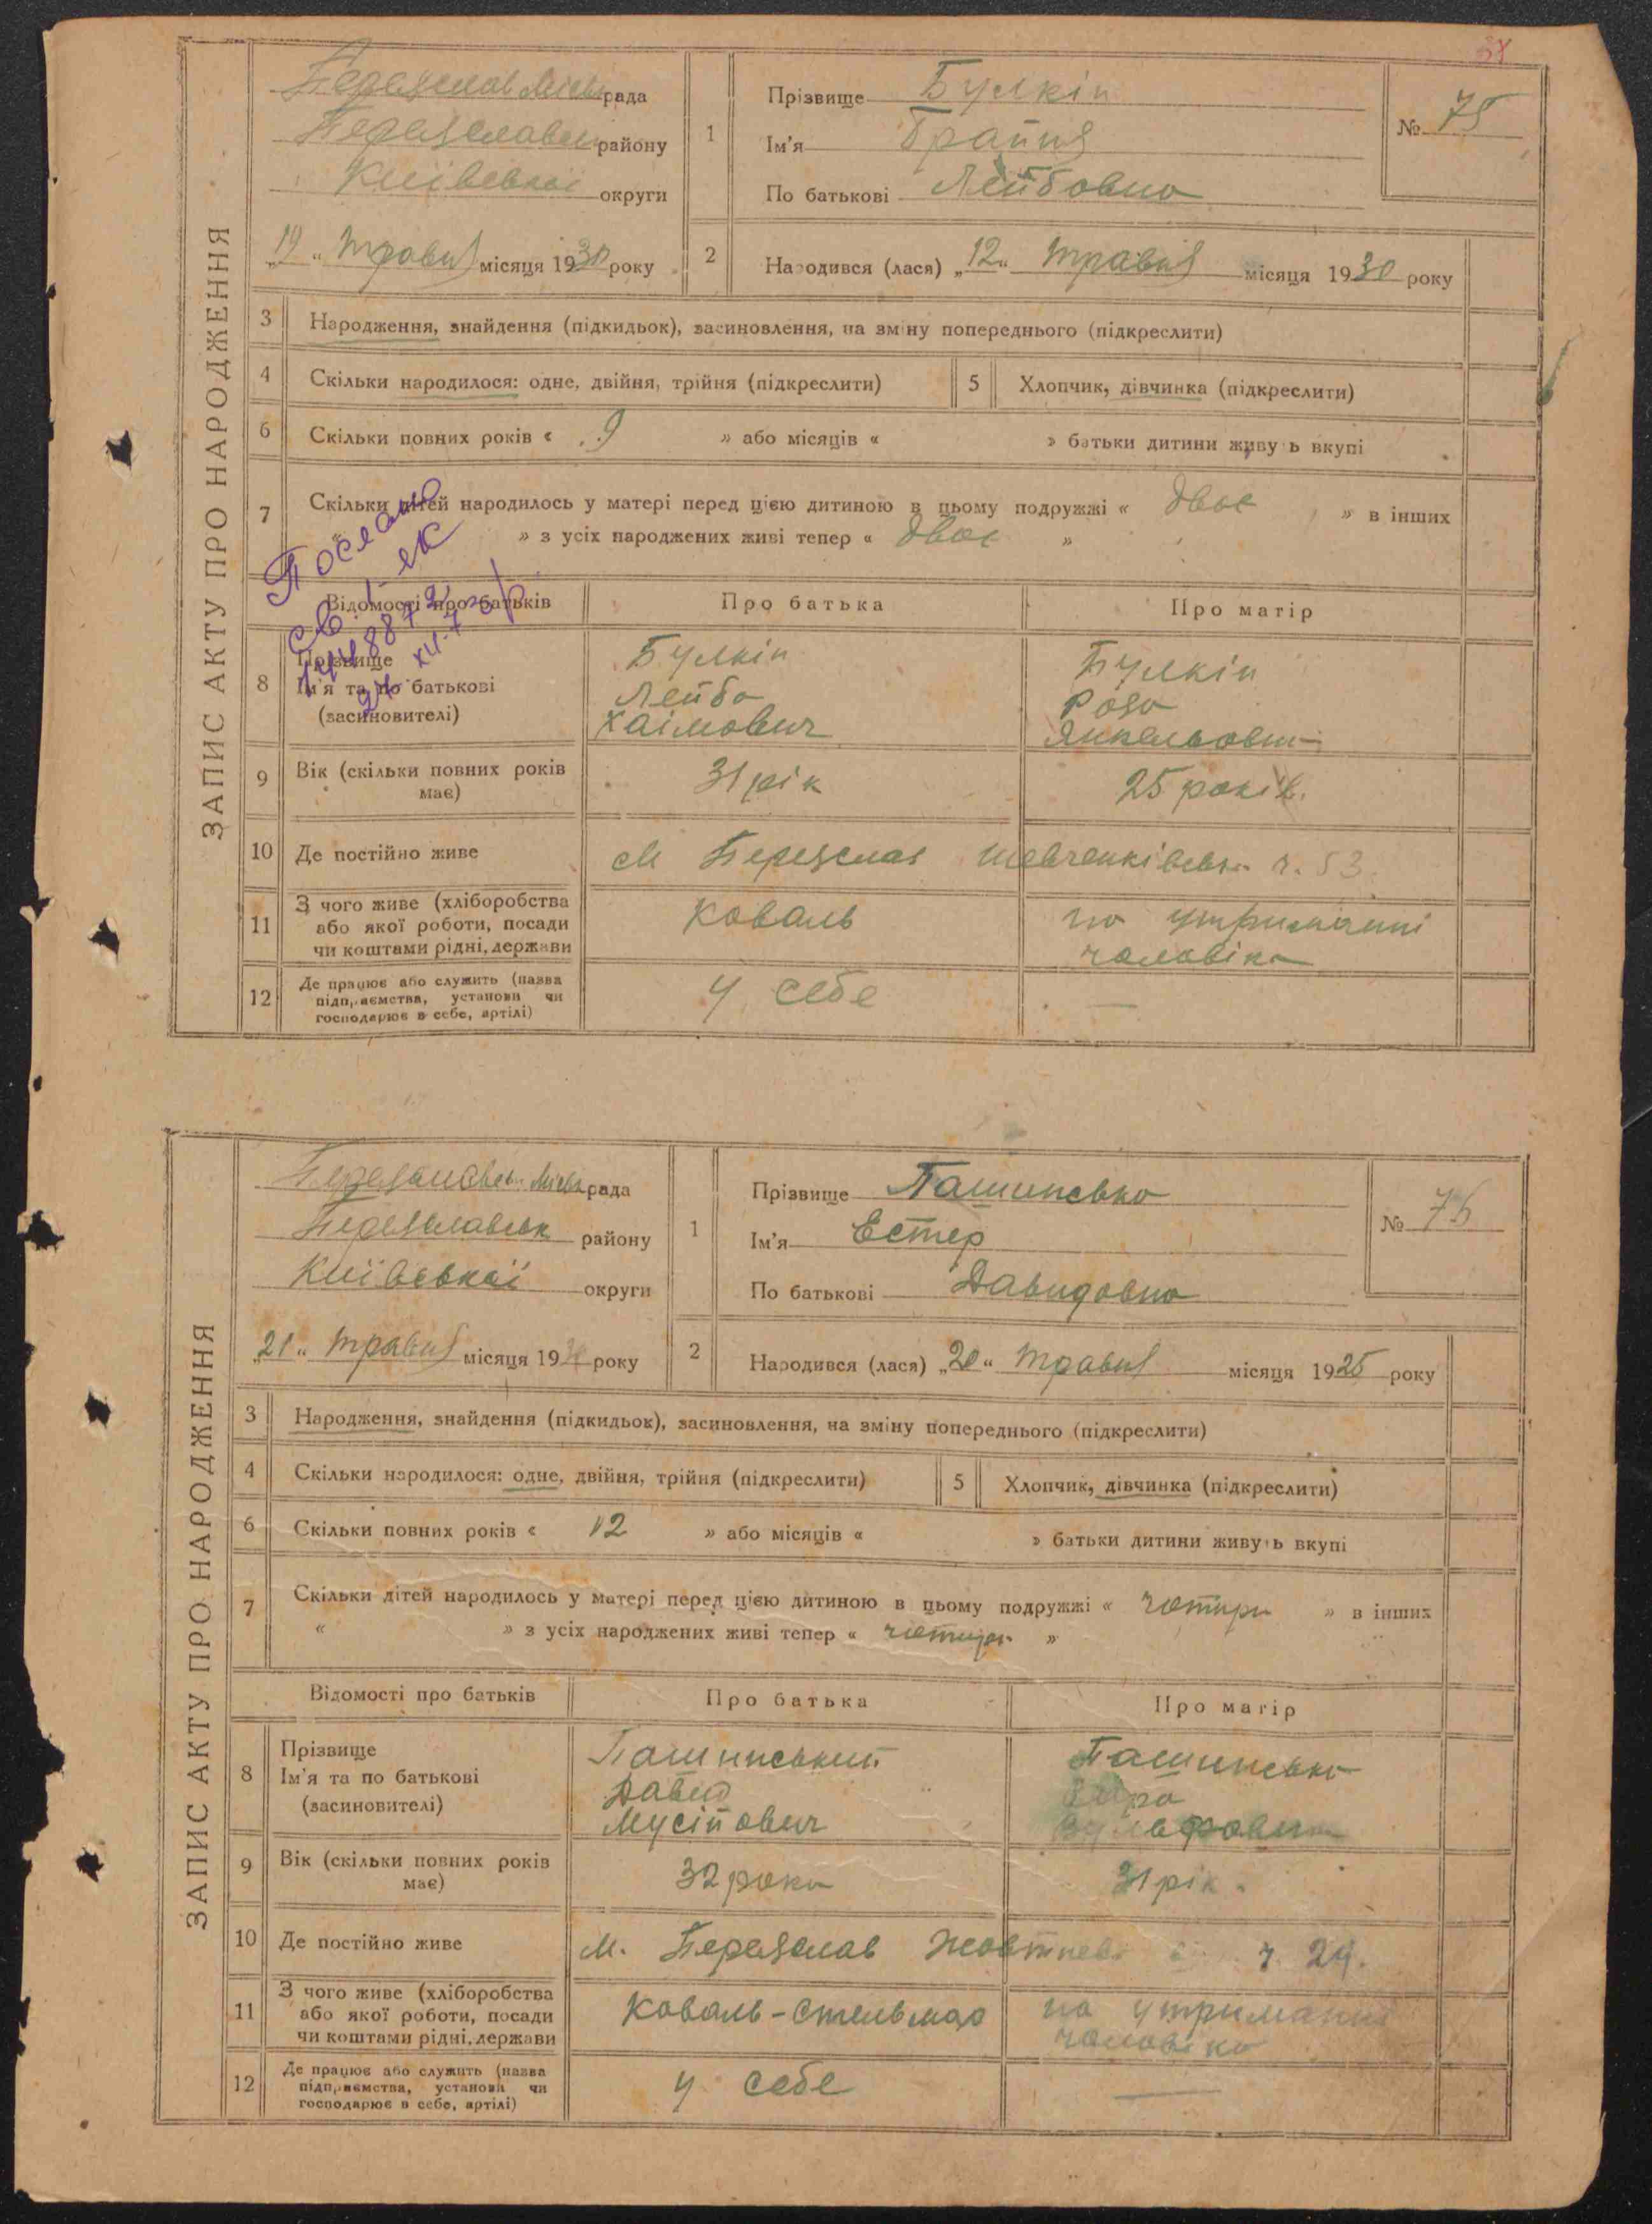 37
ЗАПИС АКТУ ПРО НАРОДЖЕННЯ
Переяслав Міськ рада
Переяславськ району
Київської округи
„19“ травня місяця 1930 року
1
Прізвище Булкін
Ім'я Браїня
По батькові Лейбовна
№ 75
2
Народився (лася) „12“ травня місяця 1930 року
3 Народження, знайдення (підкидьок), засиновлення, на зміну попереднього (підкреслити)
4 Скільки народилося: одне, двійня, трійня (підкреслити)
5 Хлопчик, дівчинка (підкреслити)
6 Скільки повних років « 9 » або місяців « » батьки дитини живуть вкупі
7 Скільки дітей народилось у матері перед цією дитиною в цьому подружжі « двоє » в інших
« » з усіх народжених живі тепер « двоє »
Послано
Відомості про батьків
Про батька
Про матір
8 Прізвище
Ім'я та по батькові
(засиновителі)
Булкін
Лейба
Хаімович
Булкін
Роза
Янкельовна
9 Вік (скільки повних років має)
31 рік
25 років.
10 Де постійно живе
м Переяслав Шевченківськ ч. 53
11 З чого живе (хліборобства
або якої роботи, посади
чи коштами рідні, держави
Коваль
на утриманні
чоловіка
12 Де працює або служить (назва
підприємства, установи чи
господарює в себе, артілі)
у себе
—
ЗАПИС АКТУ ПРО НАРОДЖЕННЯ
Переяславськ Міськ рада
Переяславськ району
Київської округи
„21“ травня місяця 1930 року
1
Прізвище Пашинська
Ім'я Естер
По батькові Давидовна
№ 76
2
Народився (лася) „20“ травня місяця 1925 року
3 Народження, знайдення (підкидьок), засиновлення, на зміну попереднього (підкреслити)
4 Скільки народилося: одне, двійня, трійня (підкреслити)
5 Хлопчик, дівчинка (підкреслити)
6 Скільки повних років « 12 » або місяців « » батьки дитини живуть вкупі
7 Скільки дітей народилось у матері перед цією дитиною в цьому подружжі « чотири » в інших
« » з усіх народжених живі тепер « чотири »
Відомості про батьків
Про батька
Про матір
8 Прізвище
Ім'я та по батькові
(засиновителі)
Пашинський
Давид
Мусійович
Пашинська
9 Вік (скільки повних років має)
32 роки
31 рік.
10 Де постійно живе
м. Переяслав Жовтнев ч. 29.
11 З чого живе (хліборобства
або якої роботи, посади
чи коштами рідні, держави
Коваль-Стельмах
на утриманні
чоловіка
12 Де працює або служить (назва
підприємства, установи чи
господарює в себе, артілі)
у себе
—